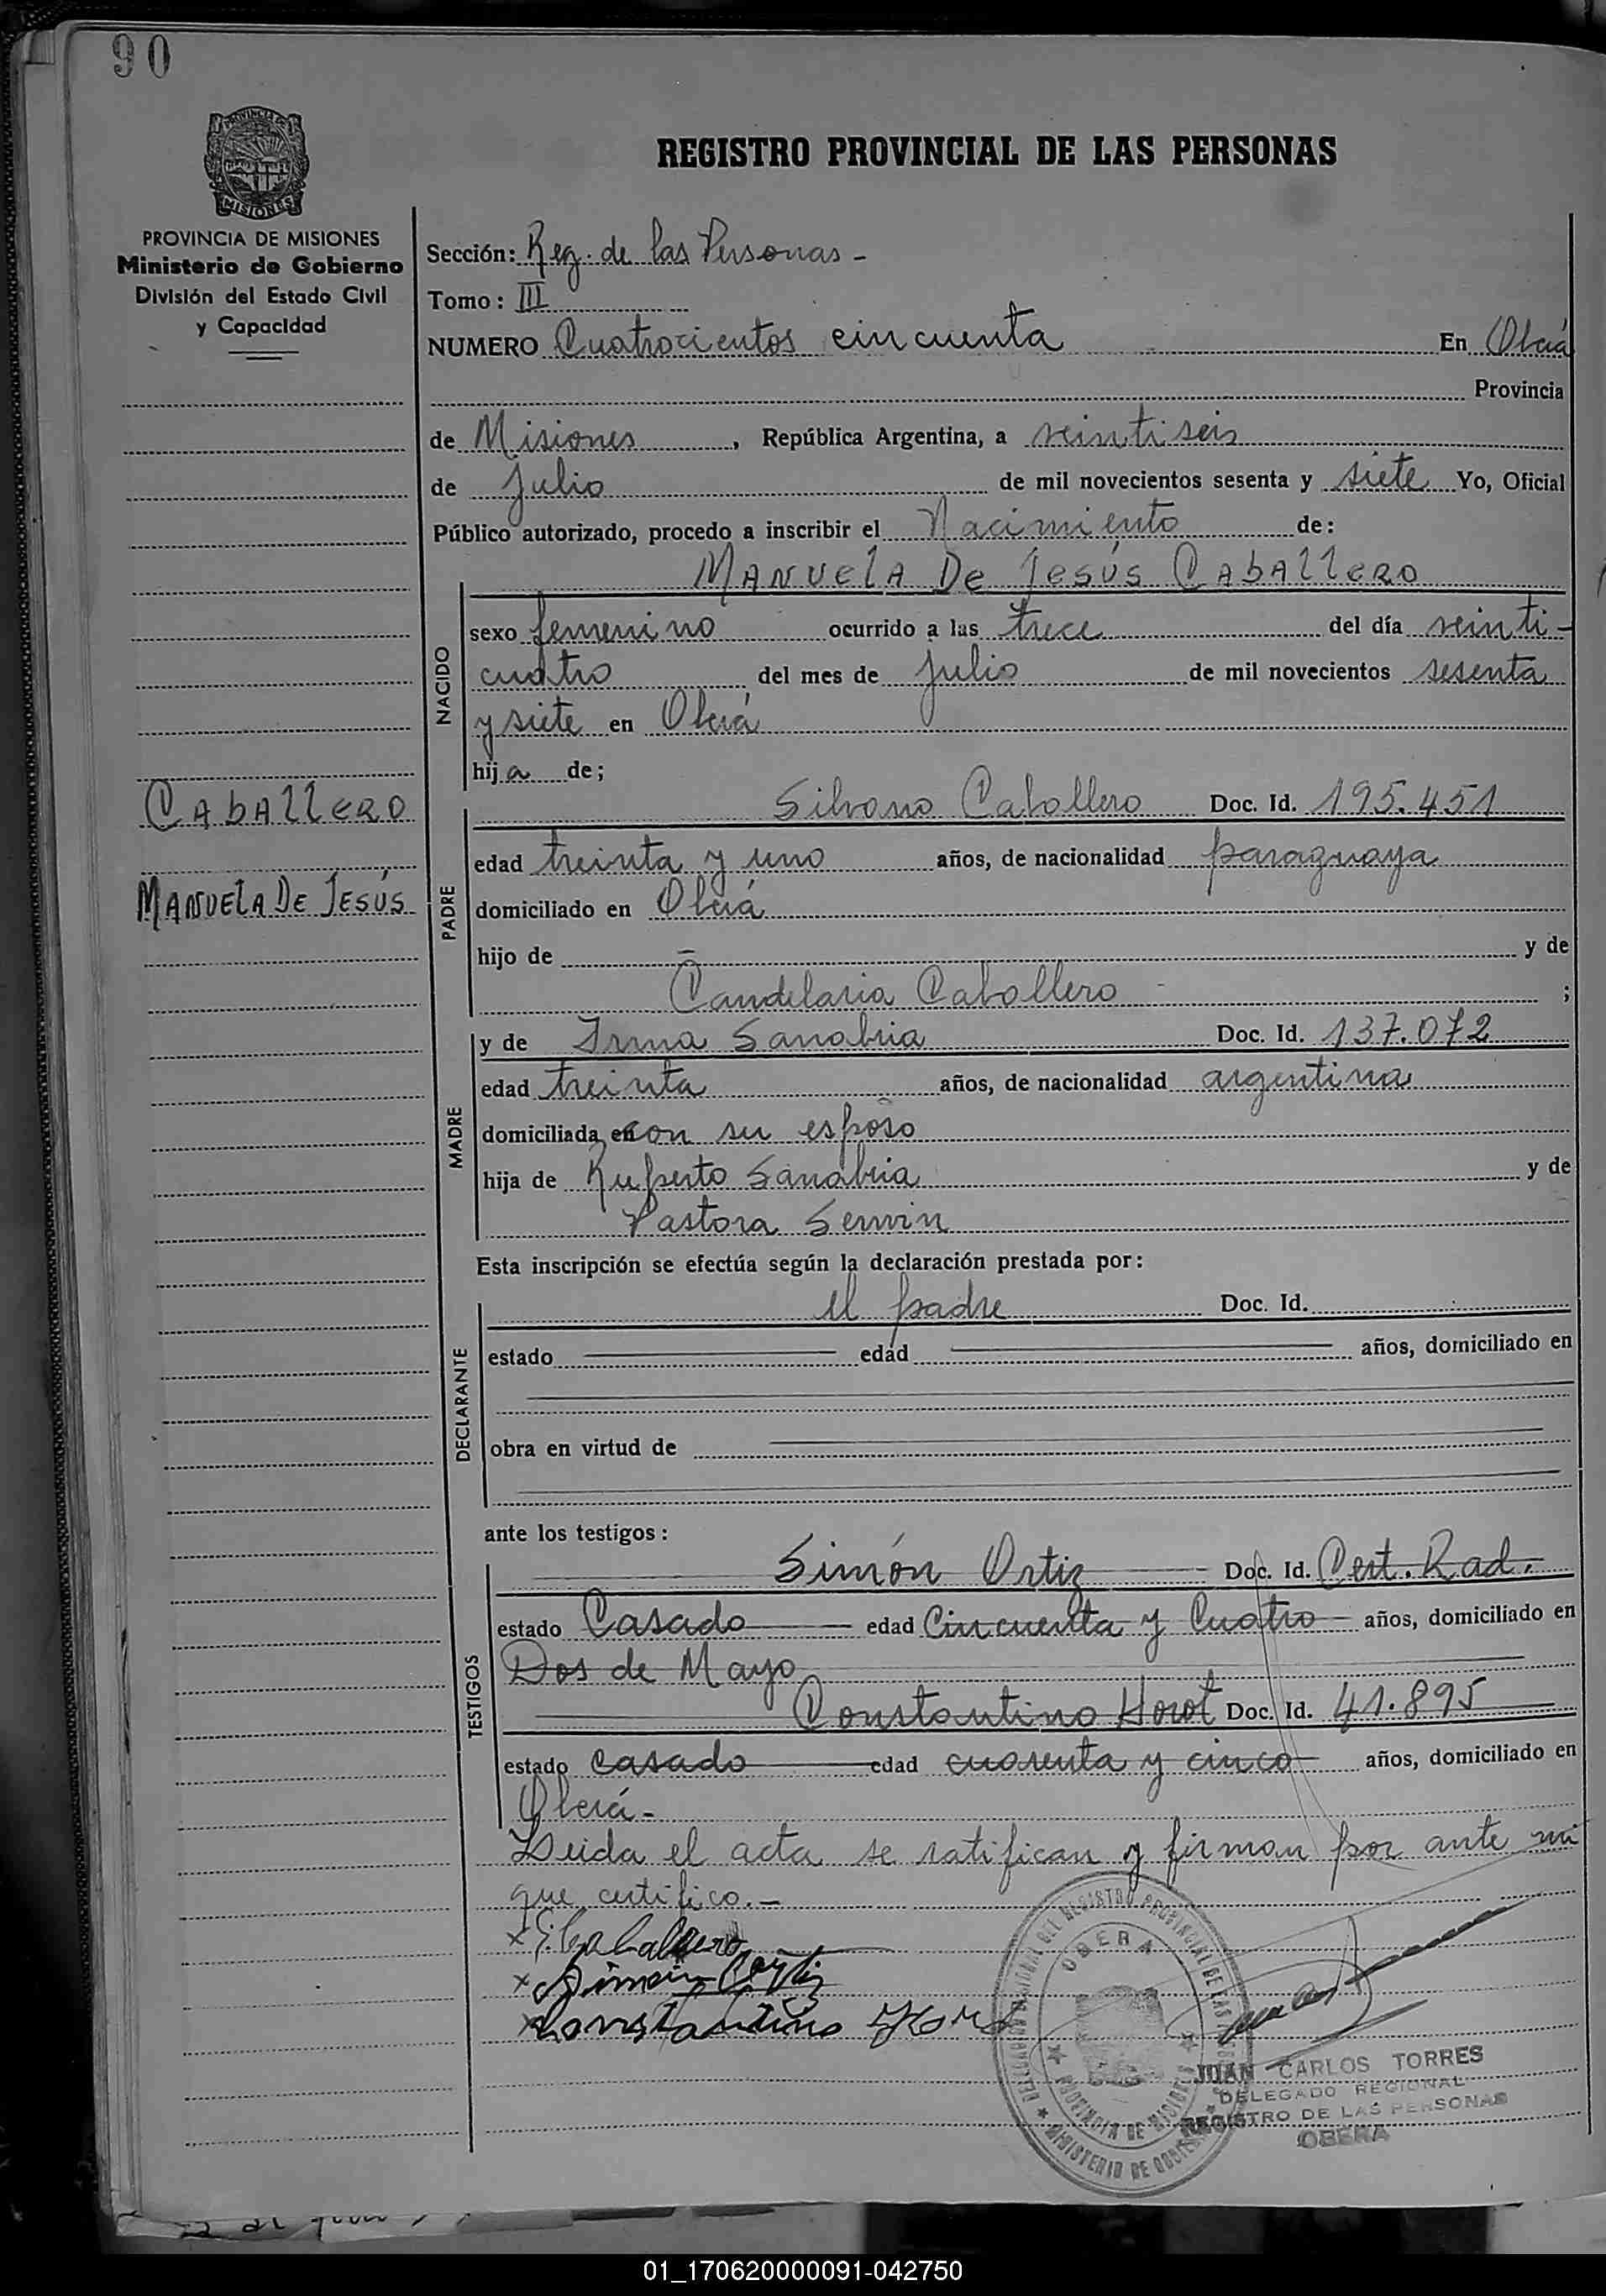 90
PROVINCIA DE
MISIONES
PROVINCIA DE MISIONES
Ministerio de Gobierno
División del Estado Civil
y Capacidad
CABALLERO
MANUELA DE JESÚS
REGISTRO PROVINCIAL DE LAS PERSONAS
Sección: Reg. de las Personas -
Tomo: III
NUMERO Cuatrocientos cincuenta En Oberá
Provincia
de Misiones, República Argentina, a veintiseis
de Julio de mil novecientos sesenta y siete Yo, Oficial
Público autorizado, procedo a inscribir el Nacimiento de:
MANUELA DE JESÚS CABALLERO
NACIDO
sexo femenino ocurrido a las trece del día veinti-
cuatro del mes de julio de mil novecientos sesenta
y siete en Oberá
hija de;
PADRE
Silvano Caballero Doc. Id. 195.451
edad treinta y uno años, de nacionalidad paraguaya
domiciliado en Oberá
hijo de - y de
Candelaria Caballero - ;
MADRE
y de Irma Sanabria Doc. Id. 137.072
edad treinta años, de nacionalidad argentina
domiciliada en con su esposo
hija de Ruperto Sanabria y de
Pastora Servin
Esta inscripción se efectúa según la declaración prestada por:
DECLARANTE
el padre Doc. Id.
estado edad años, domiciliado en
obra en virtud de
ante los testigos:
TESTIGOS
Simón Ortiz Doc. Id. Cert. Rad.
estado Casado edad Cincuenta y Cuatro años, domiciliado en
Dos de Mayo
Constantino Horot Doc. Id. 41.895
estado casado edad cuarenta y cinco años, domiciliado en
Oberá -
Leida el acta se ratifican y firman por ante mi
que certifico. -
x S. Caballero
x Simon Ortiz
x Constantino
OBERA
PROVINCIA DE MISIONES
MINISTERIO DE GOBIERNO
JUAN CARLOS TORRES
DELEGADO REGIONAL
REGISTRO DE LAS PERSONAS
OBERA
01_170620000091-042750